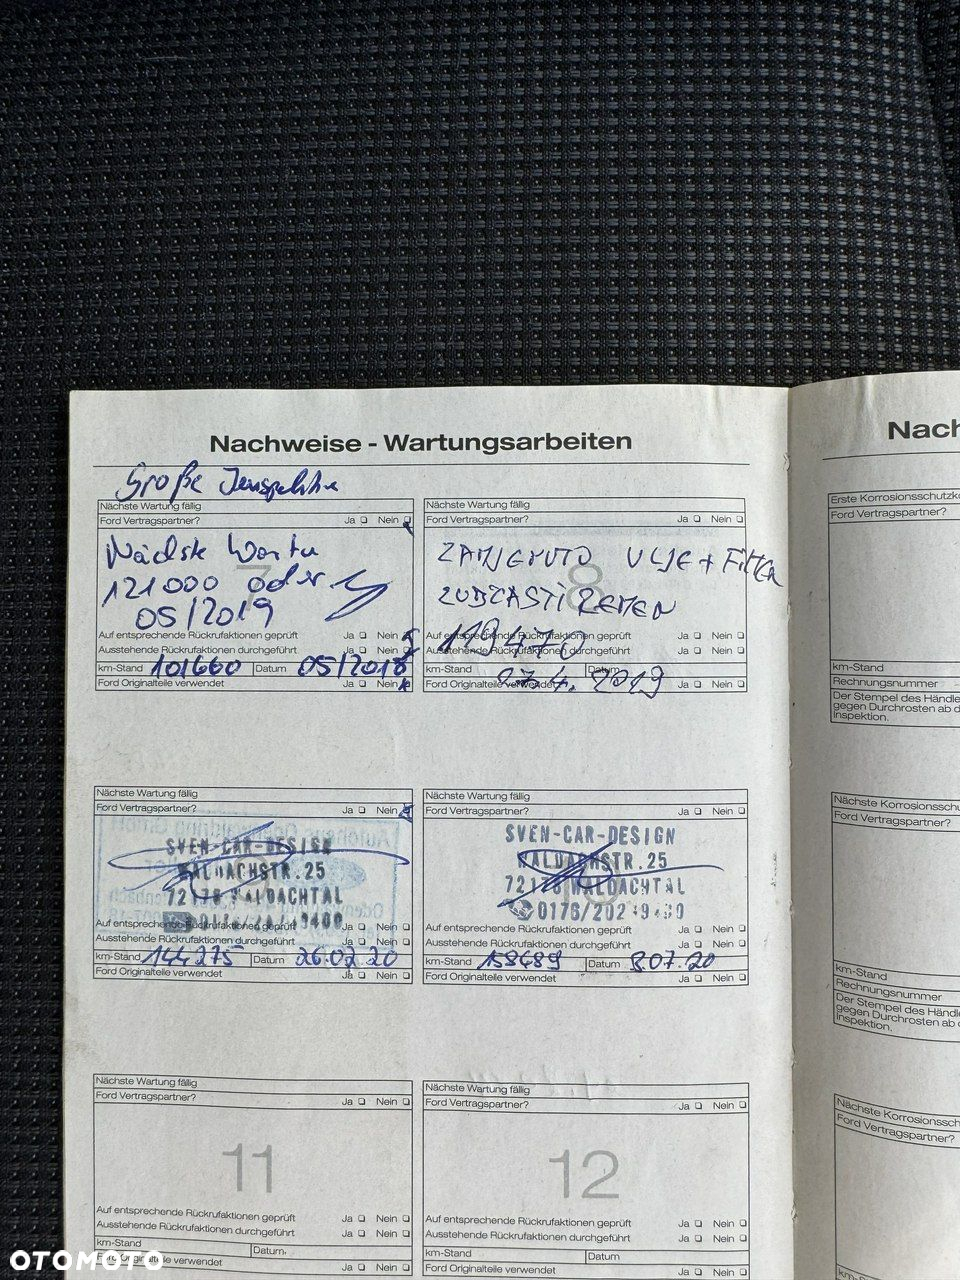 Nachweise - Wartungsarbeiten
Große Jenspektion
Nächste Wartung fällig
Ford Vertragspartner? Ja Nein
Nächste Wartu
121000 oder
05/2019
Auf entsprechende Rückrufaktionen geprüft Ja Nein
Ausstehende Rückrufaktionen durchgeführt Ja Nein
km-Stand 101660 Datum 05/2018
Ford Originalteile verwendet Ja Nein
Nächste Wartung fällig
Ford Vertragspartner? Ja Nein
8
ULJE + FilTER
ZUBZASTI REMEN
Auf entsprechende Rückrufaktionen geprüft Ja Nein
Ausstehende Rückrufaktionen durchgeführt Ja Nein
119470
km-Stand Datum
27.4. 2019
Ford Originalteile verwendet Ja Nein
Nächste Wartung fällig
Ford Vertragspartner? Ja Nein
SVEN-CAR-DESIGN
WALDACHSTR.25
72178 WALDACHTAL
Auf entsprechende Rückrufaktionen geprüft Ja Nein
Ausstehende Rückrufaktionen durchgeführt Ja Nein
km-Stand 144275 Datum 26.02.20
Ford Originalteile verwendet Ja Nein
Nächste Wartung fällig
Ford Vertragspartner? Ja Nein
SVEN-CAR-DESIGN
WALDACHSTR.25
72178 WALDACHTAL
Auf entsprechende Rückrufaktionen geprüft Ja Nein
Ausstehende Rückrufaktionen durchgeführt Ja Nein
km-Stand 158689 Datum 8.07.20
Ford Originalteile verwendet Ja Nein
Nächste Wartung fällig
Ford Vertragspartner? Ja Nein
11
Auf entsprechende Rückrufaktionen geprüft Ja Nein
Ausstehende Rückrufaktionen durchgeführt Ja Nein
km-Stand Datum
Ford Originalteile verwendet Ja Nein
Nächste Wartung fällig
Ford Vertragspartner? Ja Nein
12
Auf entsprechende Rückrufaktionen geprüft Ja Nein
Ausstehende Rückrufaktionen durchgeführt Ja Nein
km-Stand Datum
Ford Originalteile verwendet Ja Nein
Nach
Erste Korrosionsschutzko
Ford Vertragspartner?
km-Stand
Rechnungsnummer
Der Stempel des Händle
gegen Durchrosten ab d
Inspektion.
Nächste Korrosionsschu
Ford Vertragspartner?
km-Stand
Rechnungsnummer
Der Stempel des Händl
gegen Durchrosten ab
Inspektion.
Nächste Korrosionssch
Ford Vertragspartner?
km-Stand
OTOMOTO